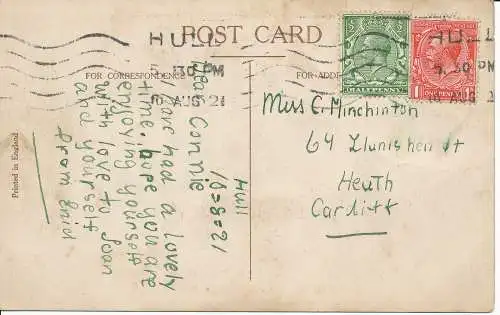 POST CARD
HULL
HULL
FOR CORRESPONDENCE
FOR ADDRE
1 30 PM
30 PM
10 AUG 21
AUG
HALFPENNY
ONE PENNY
Printed in England
Hull
10=8=21
Dear Connie
Have had a lovely
time. hope you are
enjoying yourself
with love to Joan
and yourself
from Enid
Miss C. Minchinton
64 Llunishen St
Heath
Cardiff